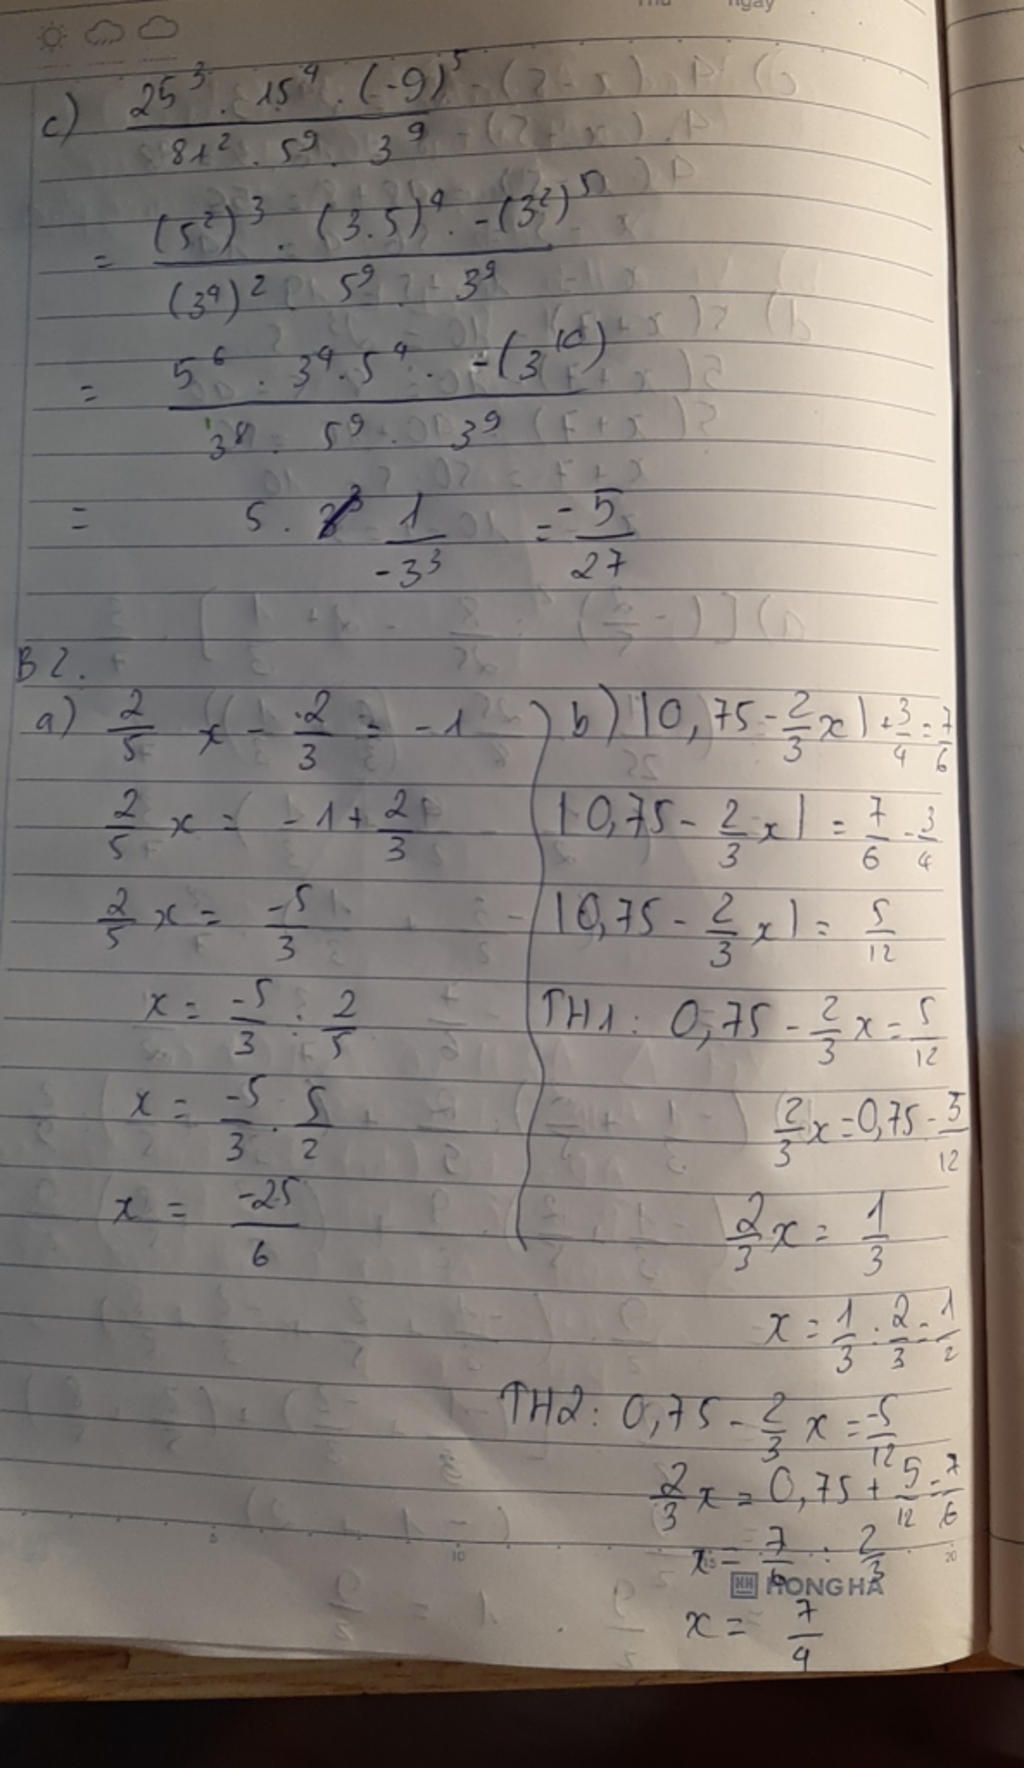 ngày
c) 25³ . 15⁴ . (-9)⁵ / 81² . 5⁹ . 3⁹
= (5²)³ . (3.5)⁴ . -(3²)⁵ / (3⁴)² . 5⁹ . 3⁹
= 5⁶ . 3⁴.5⁴ . -(3¹⁰) / 3⁸ . 5⁹ . 3⁹
= 5 . 1/-3³ = -5/27
B2.
a) 2/5 x - 2/3 = -1
2/5 x = -1 + 2/3
2/5 x = -5/3
x = -5/3 : 2/5
x = -5/3 . 5/2
x = -25/6
b) |0,75 - 2/3 x| + 3/4 = 7/6
|0,75 - 2/3 x| = 7/6 - 3/4
|0,75 - 2/3 x| = 5/12
TH1: 0,75 - 2/3 x = 5/12
2/3 x = 0,75 - 5/12
2/3 x = 1/3
x = 1/3 : 2/3 = 1/2
TH2: 0,75 - 2/3 x = -5/12
2/3 x = 0,75 + 5/12 = 7/6
x = 7/6 : 2/3
HONG HA
x = 7/4